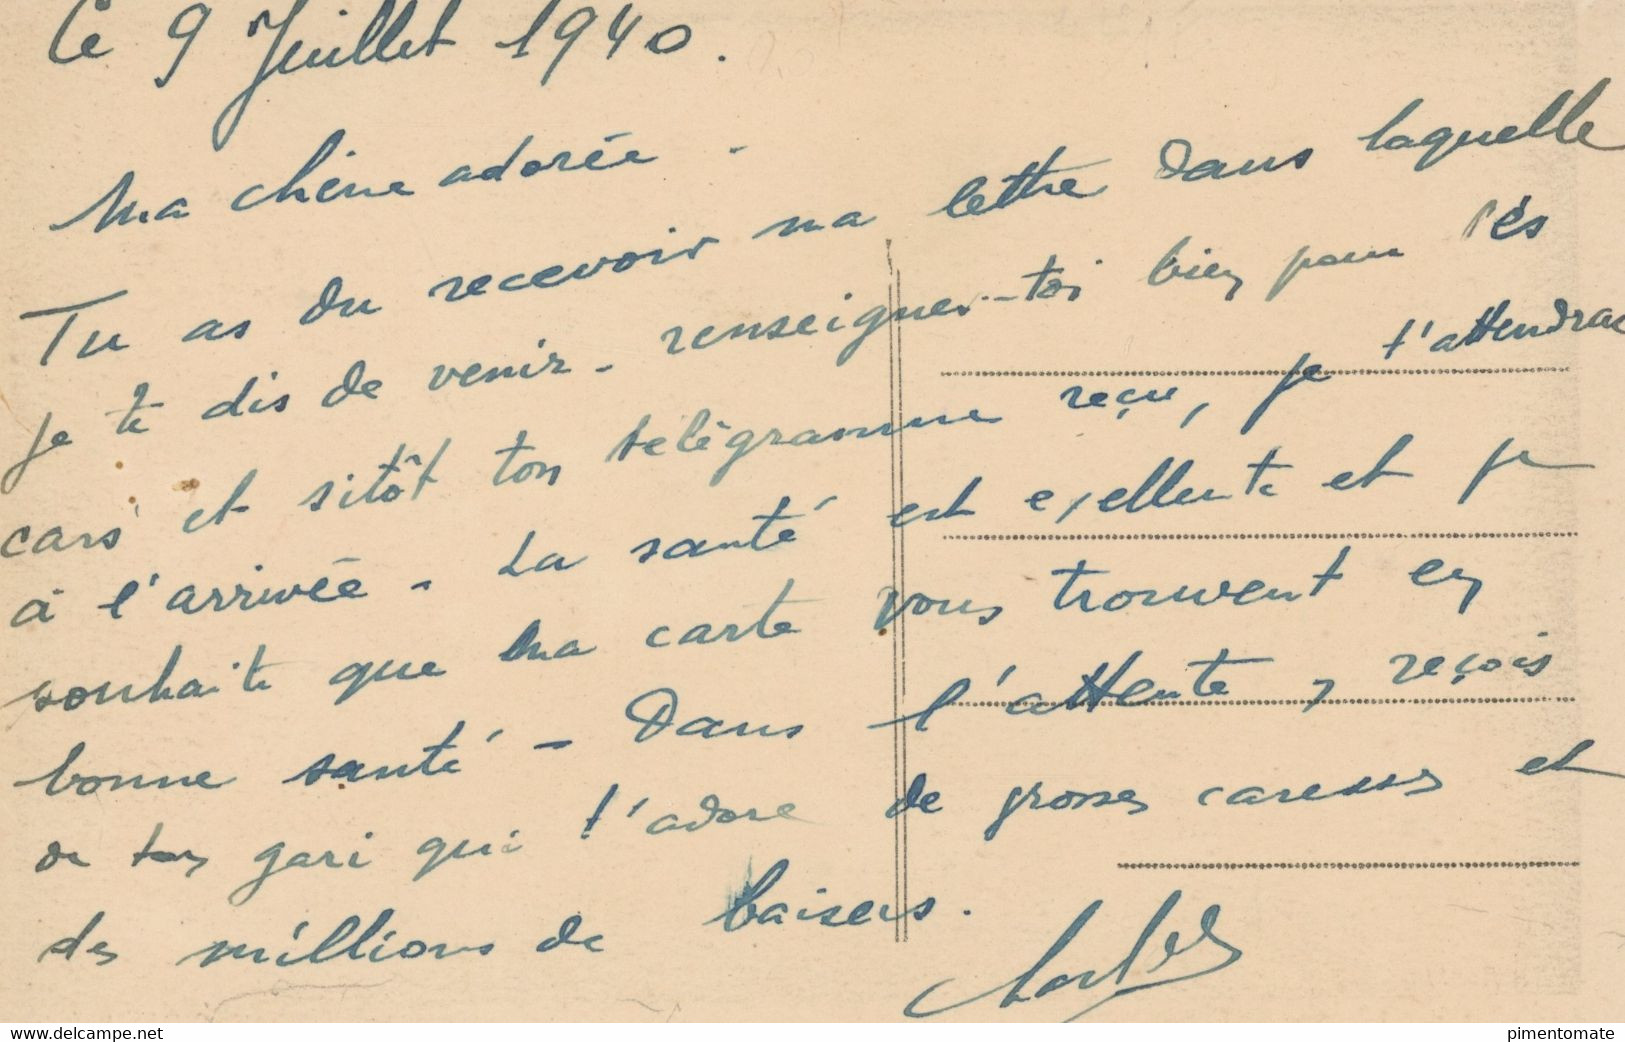 Le 9 Juillet 1940.
Ma chérie adorée.
Tu as du recevoir ma lettre dans laquelle
je te dis de venir - renseignes-toi bien pour les
cars et sitôt ton télégramme reçu, je t'attendrai
à l'arrivée - La santé est exellente et je
souhaite que ma carte vous trouvent en
bonne santé - Dans l'attente, reçois
de ton gari qui t'adore de grosses caresses et
des millions de baisers.
Charles
www.delcampe.net
pimentomate